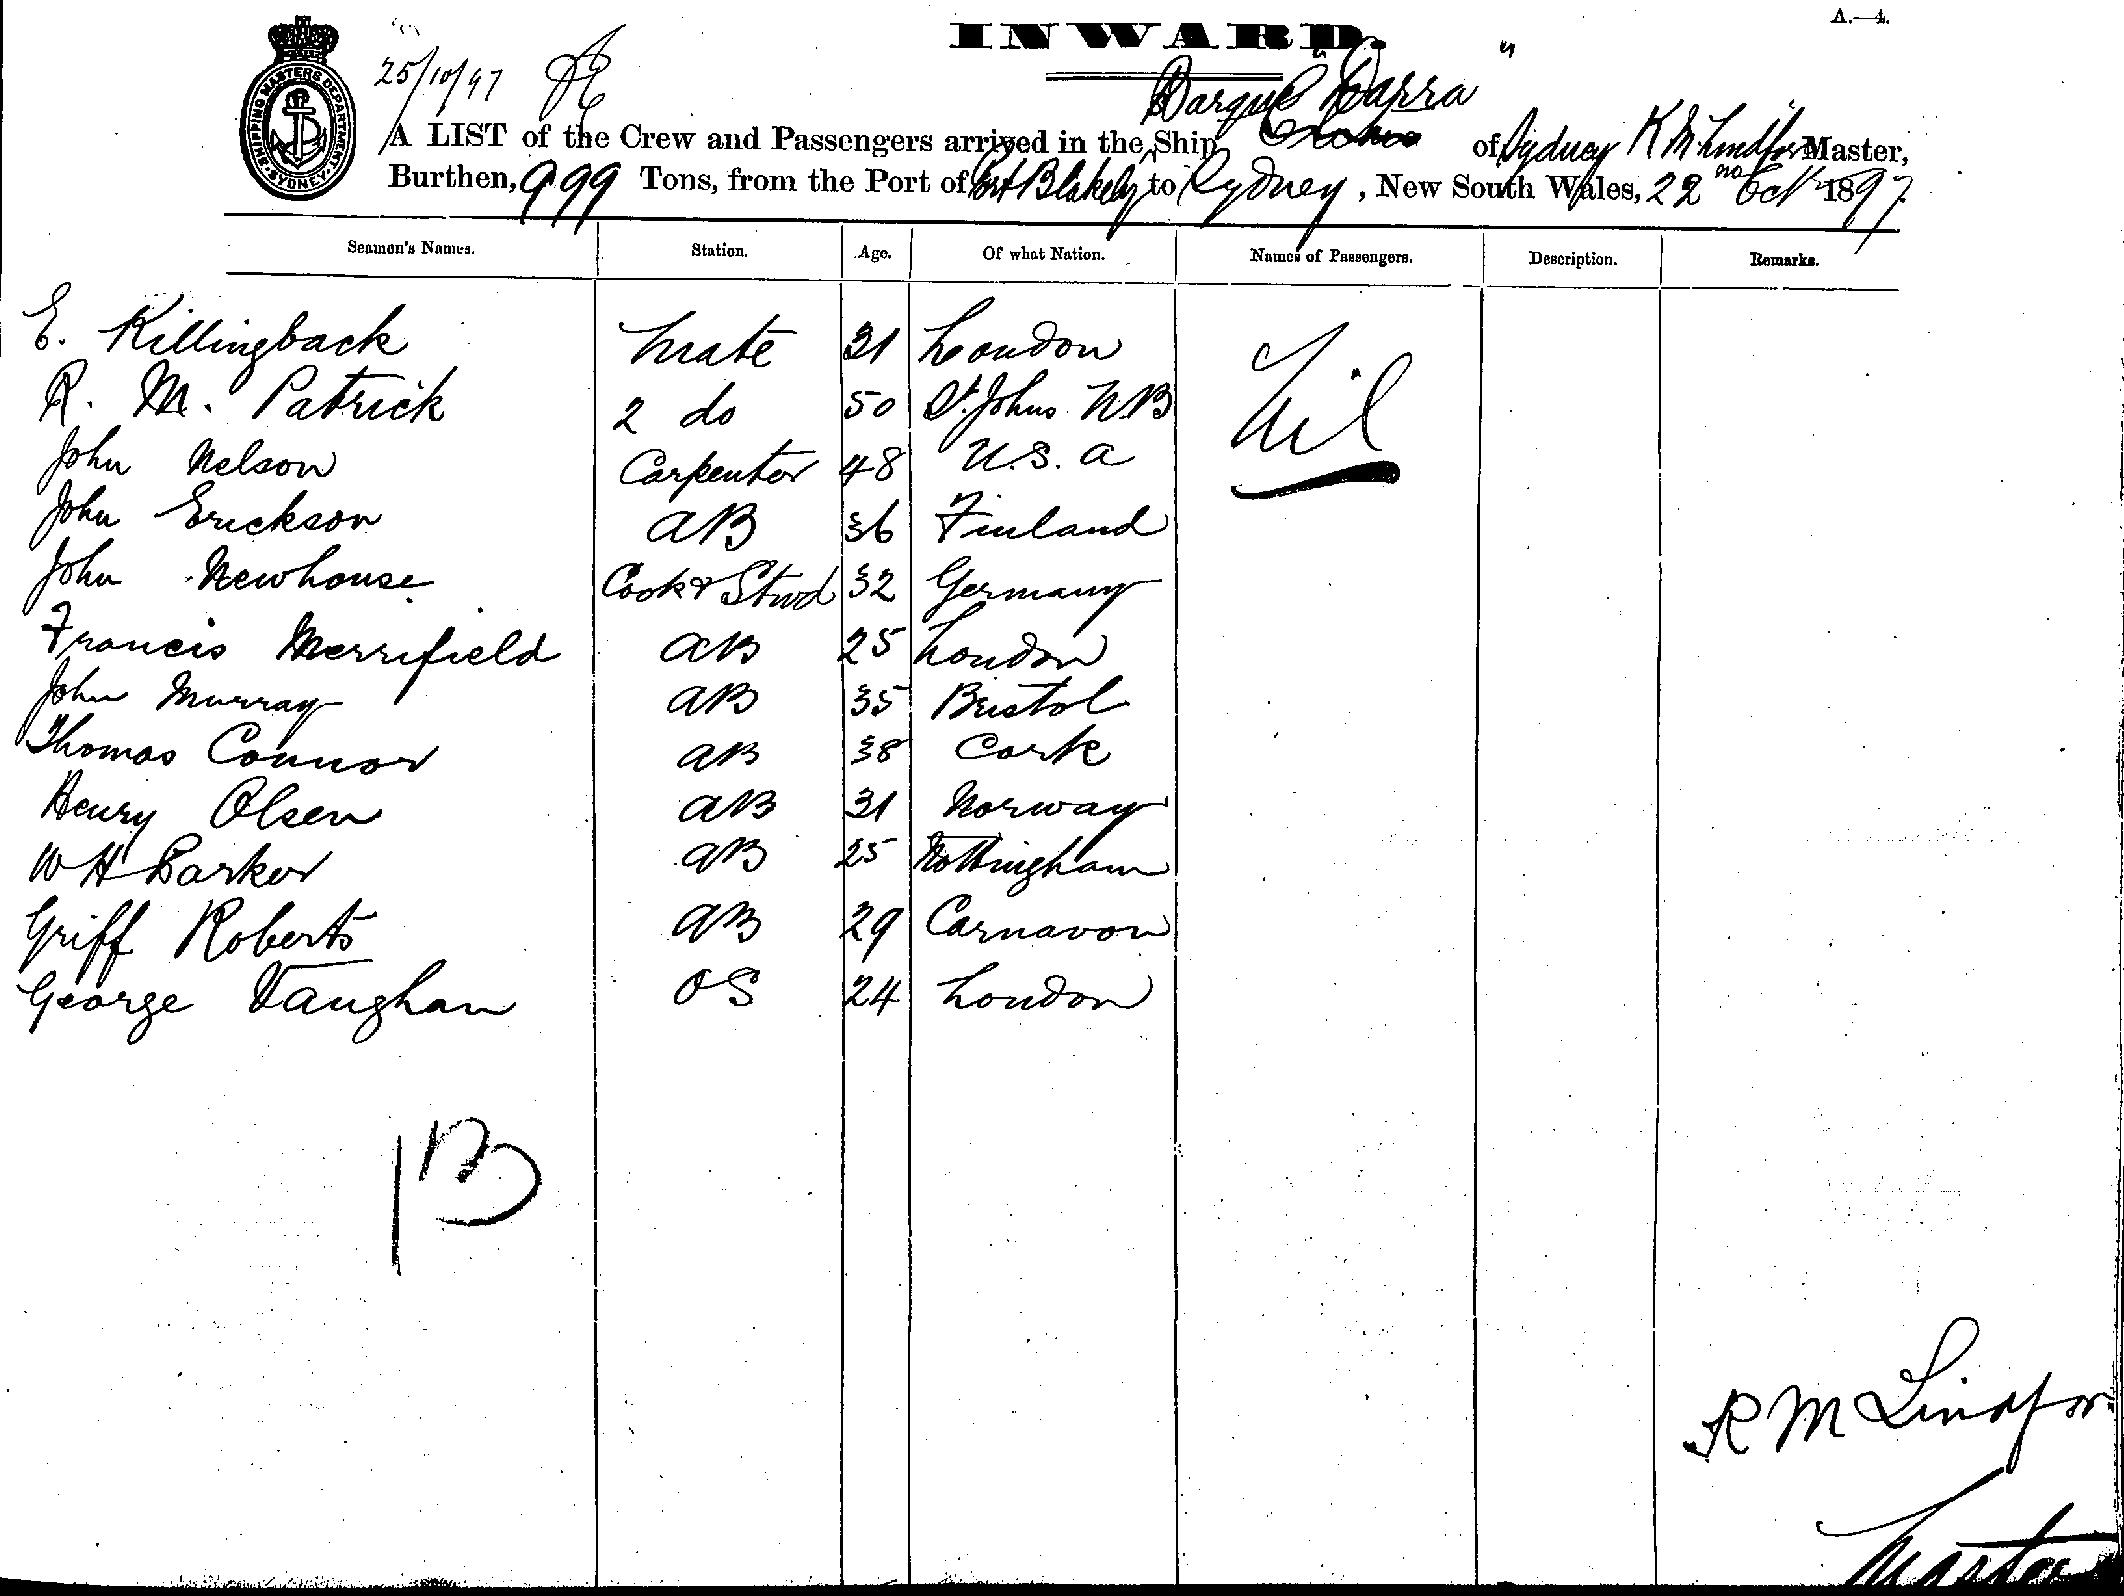 INWARD.
A.—4.
SHIPPING MASTERS DEPARTMENT
SYDNEY
25/10/97
Barque "Darra"
A LIST of the Crew and Passengers arrived in the Ship of Sydney R M Lindfor Master,
Burthen, 999 Tons, from the Port of Port Blakely to Sydney, New South Wales, 22nd Oct 1897.
Seamen's Names. Station. Age. Of what Nation. Names of Passengers. Description. Remarks.
E. Killingback Mate 31 London Nil
R. M. Patrick 2 do 50 St. Johns NB
John Nelson Carpenter 48 U.S.a
John Erickson AB 36 Finland
John Newhouse Cook & Stwd 32 Germany
Francis Merrifield AB 25 London
John Murray AB 35 Bristol
Thomas Connor AB 38 Cork
Henry Olsen AB 31 Norway
W H Barker AB 25 Nottingham
Griff Roberts AB 29 Carnavon
George Vaughan OS 24 London
13
R M Lindfor
Master